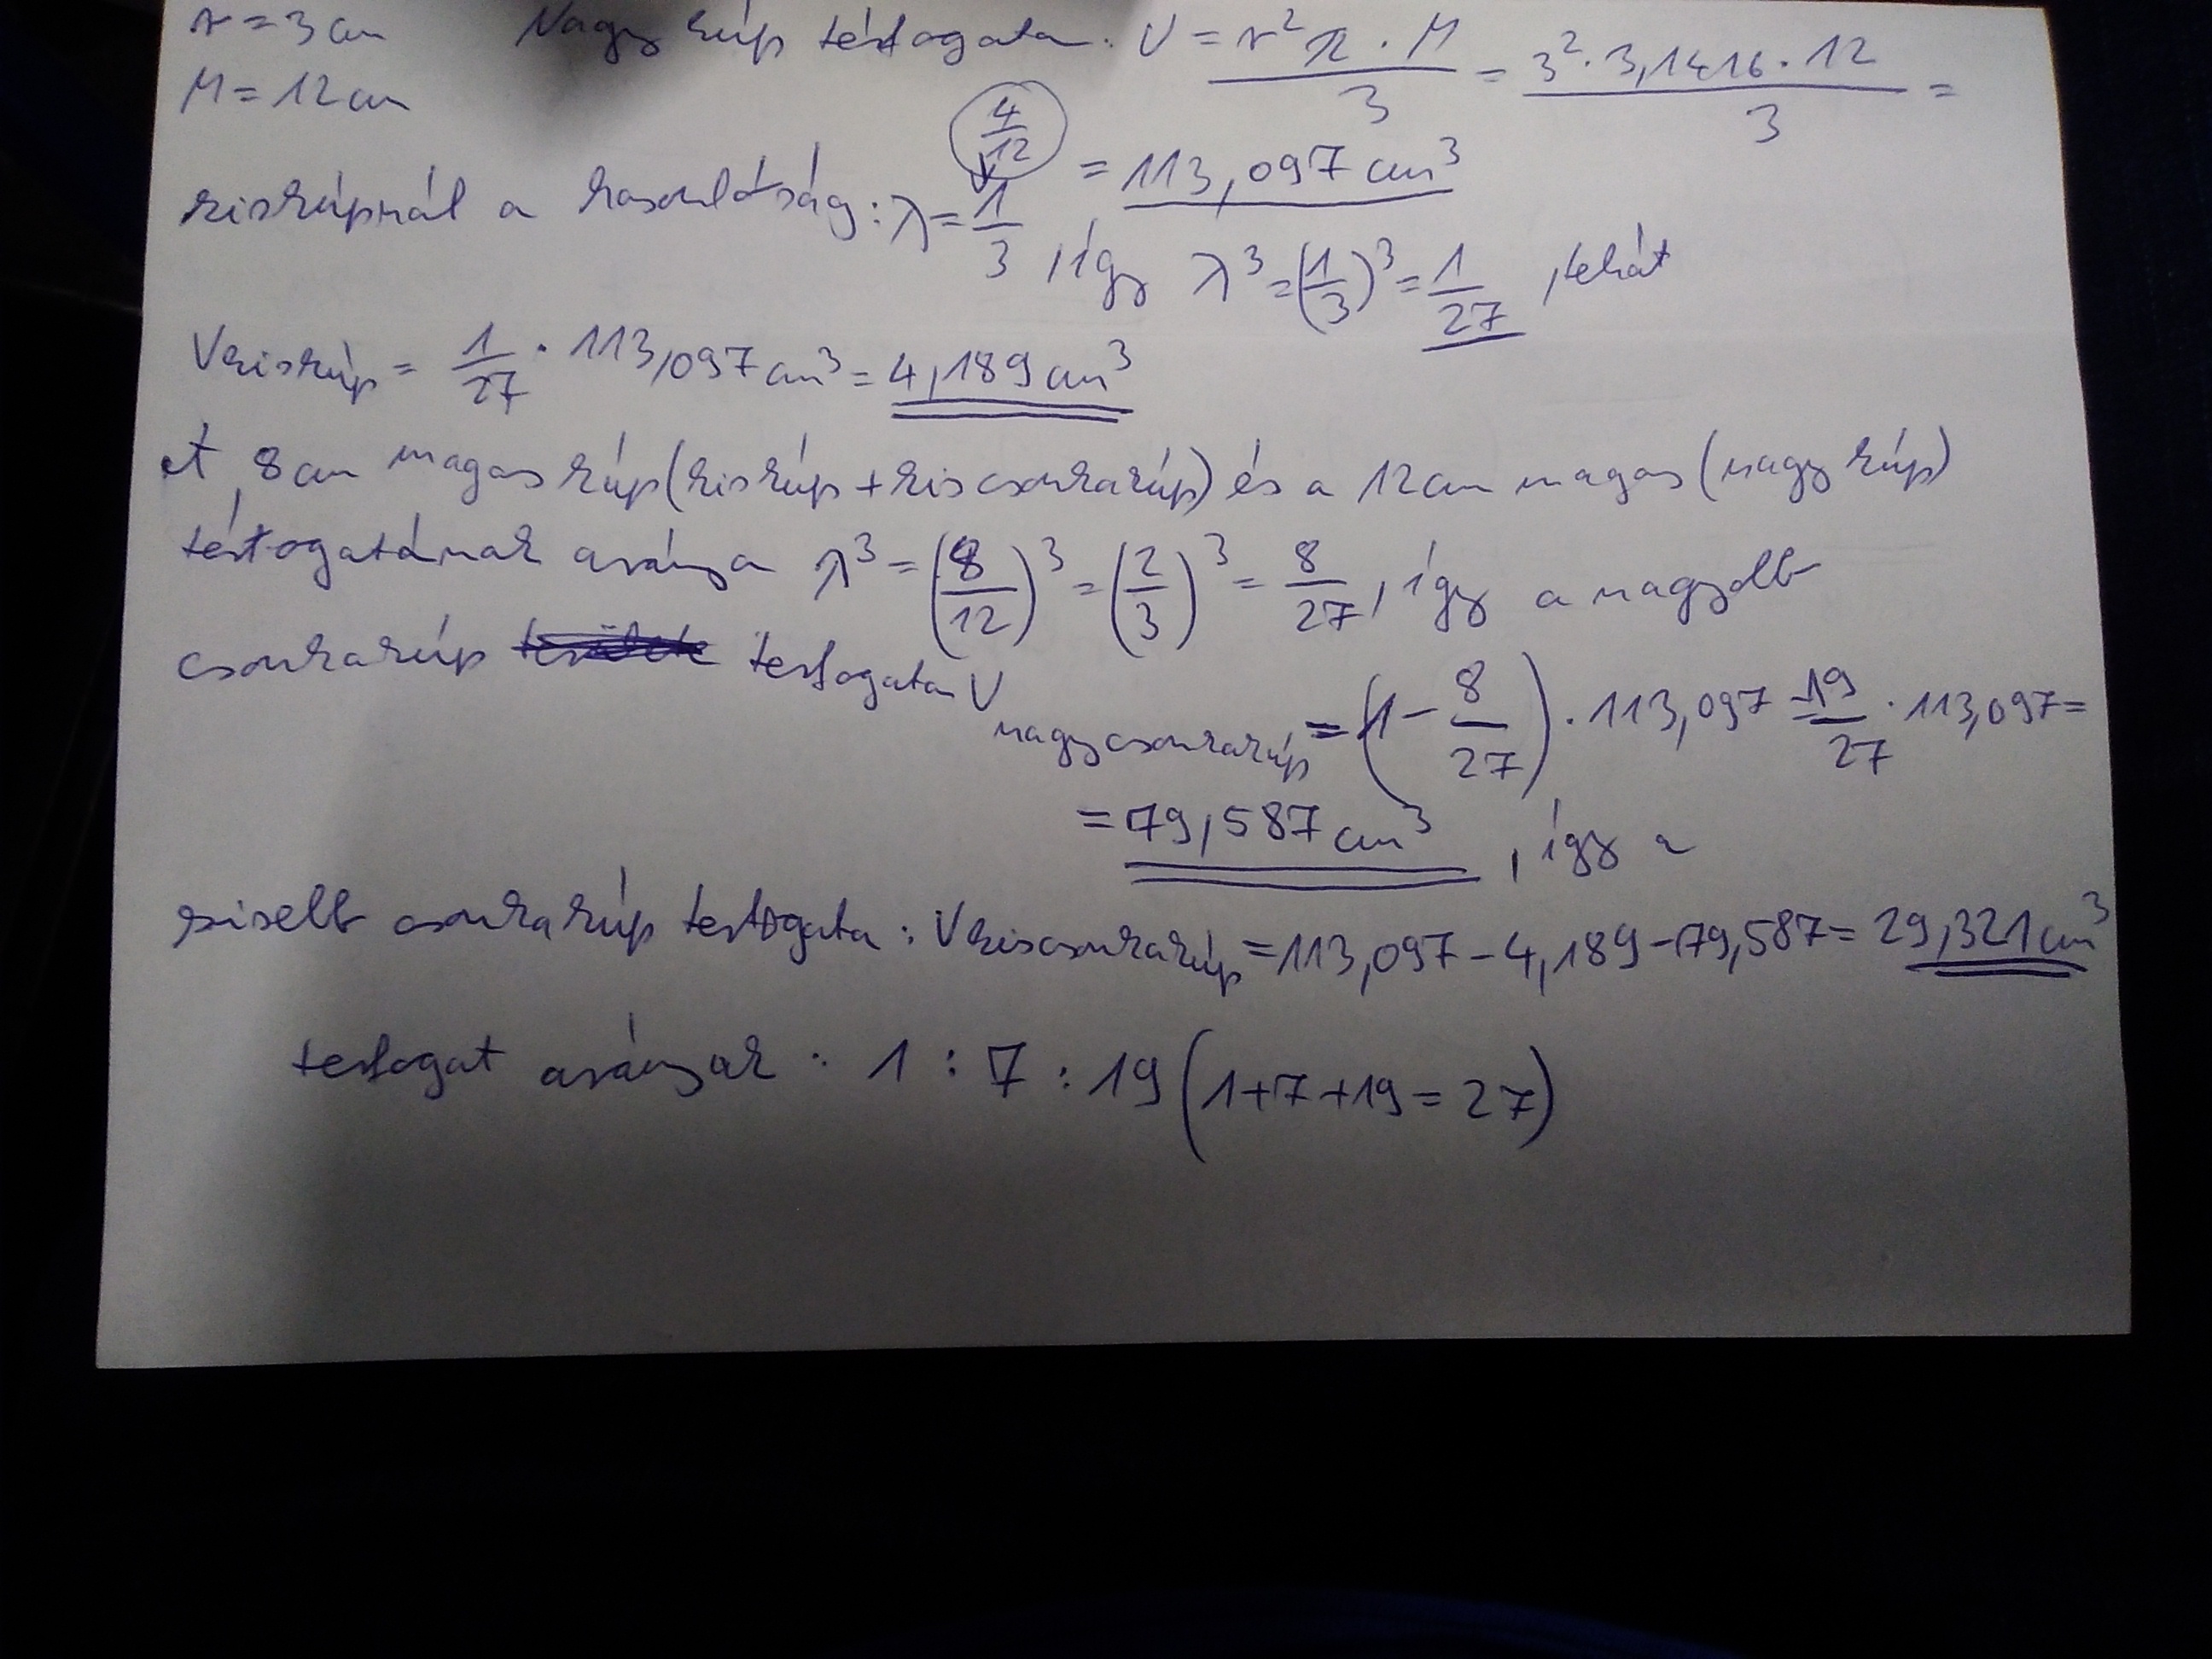 r = 3 cm Nagy kúp térfogata: V = r²π · M / 3 = 3² · 3,1416 · 12 / 3 =
M = 12 cm
4/12 = 113,097 cm³
kiskúpnál a hasonlóság: λ = 1/3, így λ³ = (1/3)³ = 1/27, tehát
Vkiskúp = 1/27 · 113,097 cm³ = 4,189 cm³
A 8 cm magas kúp (kiskúp + kiscsonkakúp) és a 12 cm magas (nagy kúp)
térfogatának aránya λ³ = (8/12)³ = (2/3)³ = 8/27, így a nagyobb
csonkakúp térfogata V nagycsonkakúp = (1 - 8/27) · 113,097 = 19/27 · 113,097 =
= 79,587 cm³, így a
kisebb csonkakúp térfogata: Vkiscsonkakúp = 113,097 - 4,189 - 79,587 = 29,321 cm³
térfogat arányok: 1 : 7 : 19 (1+7+19 = 27)